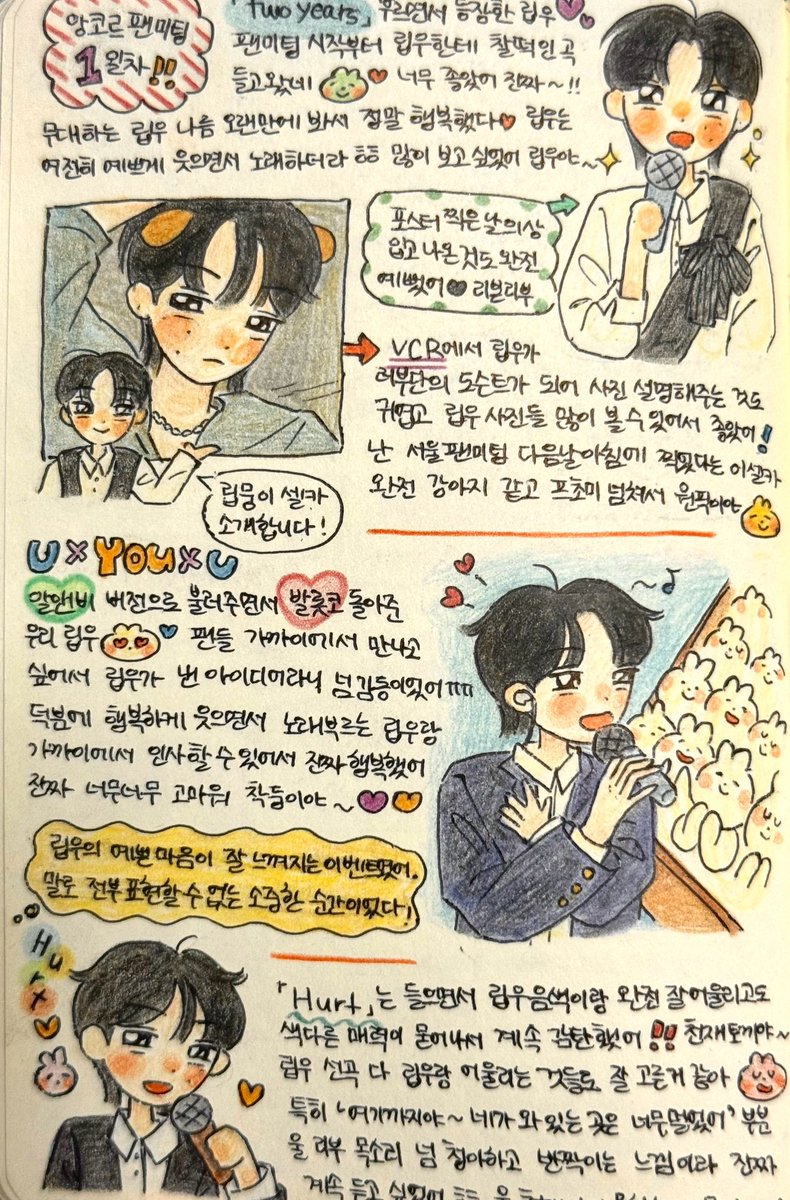 앙코르 팬미팅
1일차!!
「two years」 부르면서 등장한 립우
팬미팅 시작부터 립우한테 찰떡인 곡
들고왔네 너무 좋았어 진짜~!!
무대하는 립우 나름 오랜만에 봐서 정말 행복했다 립우는
여전히 예쁘게 웃으면서 노래하더라 ㅎㅎ 많이 보고싶었어 립우야~
포스터 찍은 날 의상
입고 나온 것도 완전
예뻤어 리본리부
VCR에서 립우가
러부단의 도슨트가 되어 사진 설명해주는 것도
귀엽고 립우 사진들 많이 볼 수 있어서 좋았어!
난 서울팬미팅 다음날 아침에 찍었다는 이 셀카
완전 강아지 같고 프초미 넘쳐서 원픽이야
립뭉이 셀카
소개합니다!
U×You×U
알앤비 버전으로 불러주면서 발룻코 돌아준
우리 립우 팬들 가까이에서 만나고
싶어서 립우가 낸 아이디어라니 넘 감동이었어ㅠㅠㅠ
덕분에 행복하게 웃으면서 노래부르는 립우랑
가까이에서 인사할 수 있어서 진짜 행복했어
진짜 너무너무 고마워 착들이야~
립우의 예쁜 마음이 잘 느껴지는 이벤트였어.
말로 전부 표현할 수 없는 소중한 순간이었다!
Hurt
「Hurt」는 들으면서 립우 음색이랑 완전 잘 어울리고도
색다른 매력이 묻어나서 계속 감탄했어!! 천재토끼야~
립우 선곡 다 립우랑 어울리는 것들로 잘 고른거 같아
특히 '여기까지야~ 네가 와 있는 곳은 너무 멀었어' 부분
울 리부 목소리 넘 청아하고 반짝이는 느낌이라 진짜
계속 듣고 싶었어 ㅎㅎ